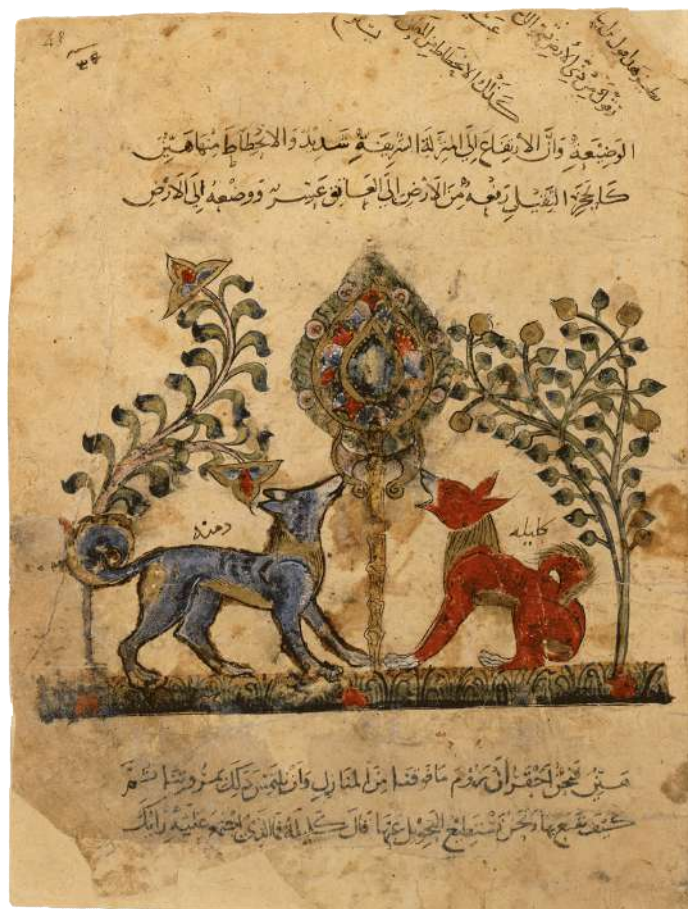 48
٣٤
كذلك الانحطاط من
الوضيعة وان الارتفاع الى المنزلة الشريفة شديد والانحطاط منها هين
كالحجر الثقيل رفعه من الارض الى العاتق عسر ووضعه الى الارض
دمنه
كليله
هين فنحن احق ان نروم ما فوقنا من المنازل وان نلتمس ذلك بمروتنا ثم
كيف نقنع بها ونحن نستطيع التحويل عنها قال كليلة فما الذي اجتمع عليه رايك